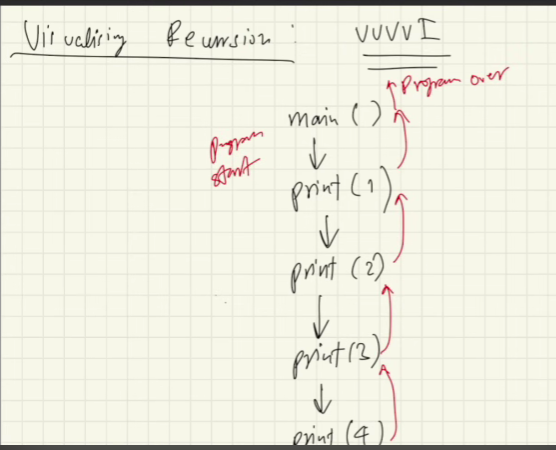 Visualising Recursion : VVVVI
Program over
main ( )
Program
start
print (1)
print (2)
print (3)
print (4)